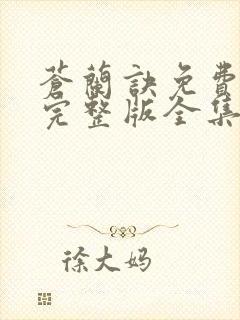 蒼蘭訣免費
完整版全集
徐大妈